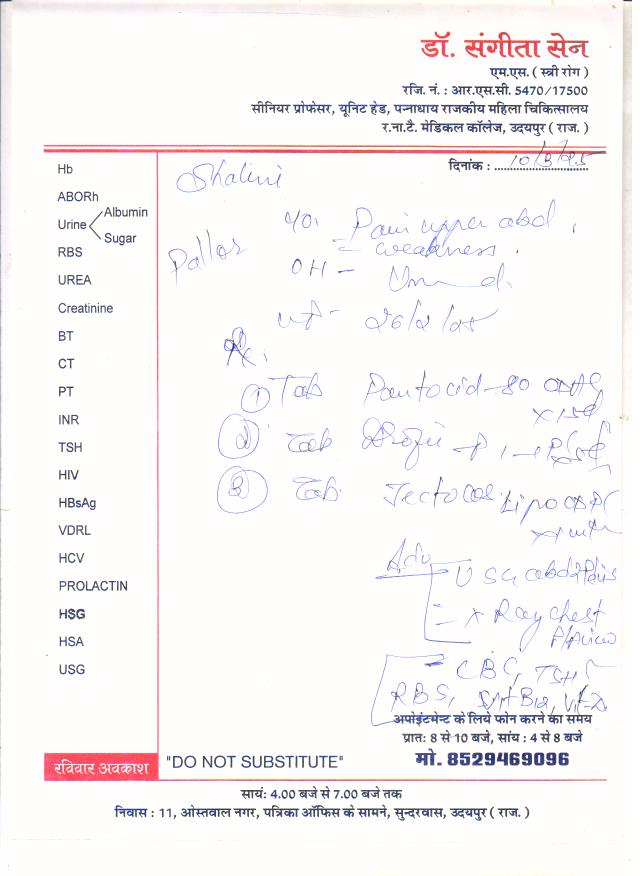 डॉ. संगीता सेन
एम.एस. ( स्त्री रोग )
रजि. नं. : आर.एस.सी. 5470/17500
सीनियर प्रोफेसर, यूनिट हेड, पन्नाधाय राजकीय महिला चिकित्सालय
र.ना.टै. मेडिकल कॉलेज, उदयपुर ( राज. )
दिनांक :
Hb
ABORh
Urine Albumin
Sugar
RBS
UREA
Creatinine
BT
CT
PT
INR
TSH
HIV
HBsAg
VDRL
HCV
PROLACTIN
HSG
HSA
USG
Shalini
Pain upper abd,
weakness.
Pallor
OH -
26/2/25
Rx.
① Tab Pantocid-80
② Tab
③ Tab.
Adv
USG abd+Pelvis
= X Ray chest
= CBC, TSH
RBS, Vit B12, Vit-D
अपोइंटमेन्ट के लिये फोन करने का समय
प्रातः 8 से 10 बजे, सांय : 4 से 8 बजे
मो. 8529469096
रविवार अवकाश
"DO NOT SUBSTITUTE"
सायं: 4.00 बजे से 7.00 बजे तक
निवास : 11, ओस्तवाल नगर, पत्रिका ऑफिस के सामने, सुन्दरवास, उदयपुर ( राज. )